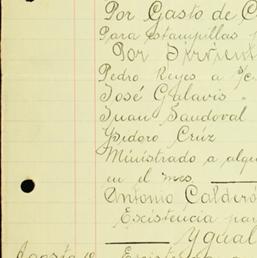 Por Gasto de C
Para estampillas p
Por Sirvient
Pedro Reyes a s/c.
José Galavis "
Juan Sandoval
Ysidoro Crúz
Ministrado a alqu
en el mes
Antonio Calderó
Excistencia par
Ygual
Agosto 1o Excistencia